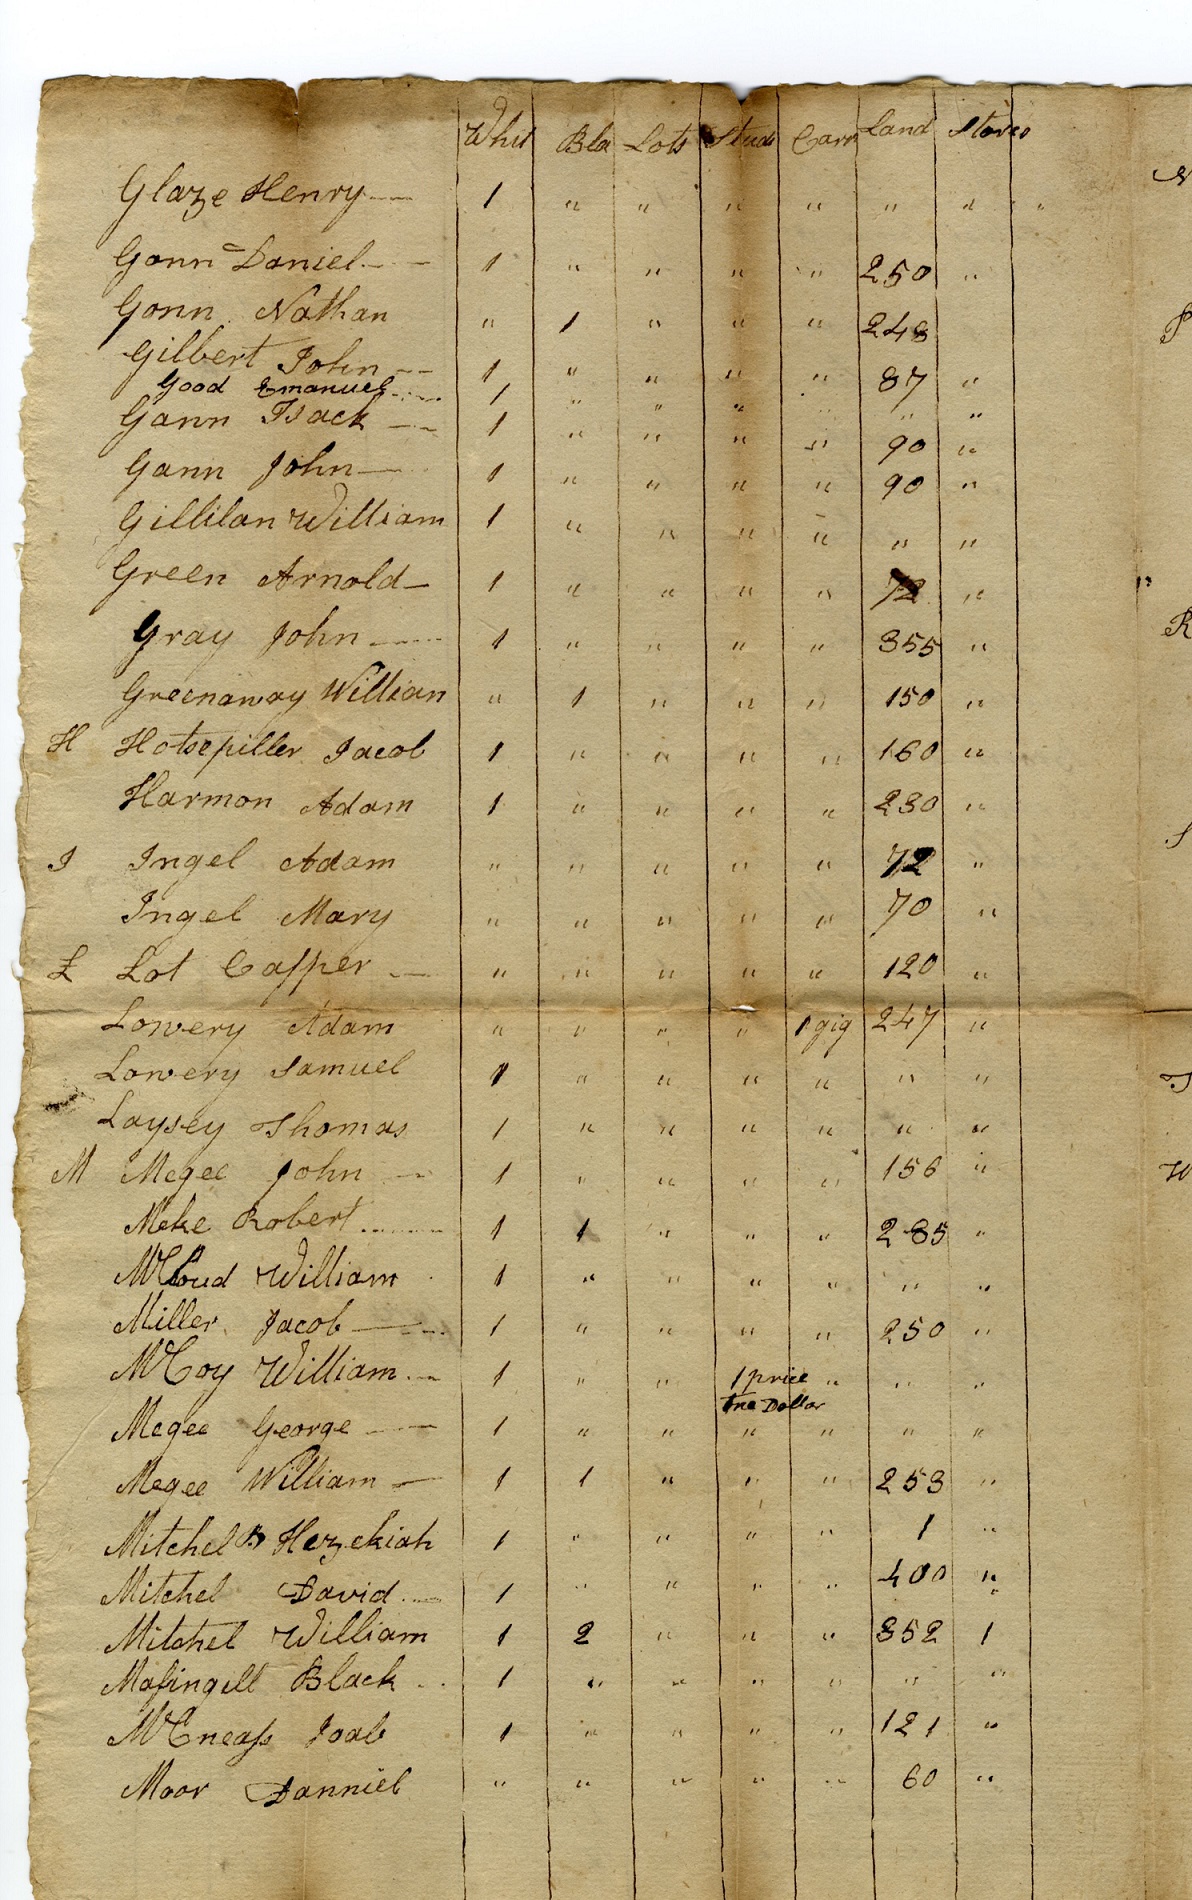 Whit Bla Lots Studs Carr Land Stores
Glaze Henry 1 " " " " " " "
Gann Daniel 1 " " " " 250 "
Gann Nathan " 1 " " " 248
Gilbert John 1 " " " " 87 "
Good Emanuel 1 " " " " " "
Gann Isack 1 " " " " 90 "
Gann John 1 " " " " 90 "
Gillilan William 1 " " " " " "
Green Arnold 1 " " " " 72 "
Gray John 1 " " " " 355 "
Greenaway William " 1 " " " 150 "
H Hotsepiller Jacob 1 " " " " 160 "
Harmon Adam 1 " " " " 230 "
I Ingel Adam " " " " " 72 "
Ingel Mary " " " " " 70 "
L Lot Casper " " " " " 120 "
Lowery Adam " " " " 1 gig 247 "
Lowery Samuel 1 " " " " " "
Laysey Thomas 1 " " " " " "
M Megee John 1 " " " " 156 "
Meke Robert 1 1 " " " 285 "
McCloud William 1 " " " " " "
Miller Jacob 1 " " " " 250 "
McCoy William 1 " " 1 price " " "
one Dollar
Megee George 1 " " " " " "
Megee William 1 1 " " " 253 "
Mitchel B Hezekiah 1 " " " " 1 "
Mitchel David 1 " " " " 400 "
Mitchel William 1 2 " " " 352 1
Massingill Black 1 " " " " " "
McCneass Joab 1 " " " " 121 "
Moor Danniel " " " " " 60 "
N
P
R
S
T
W